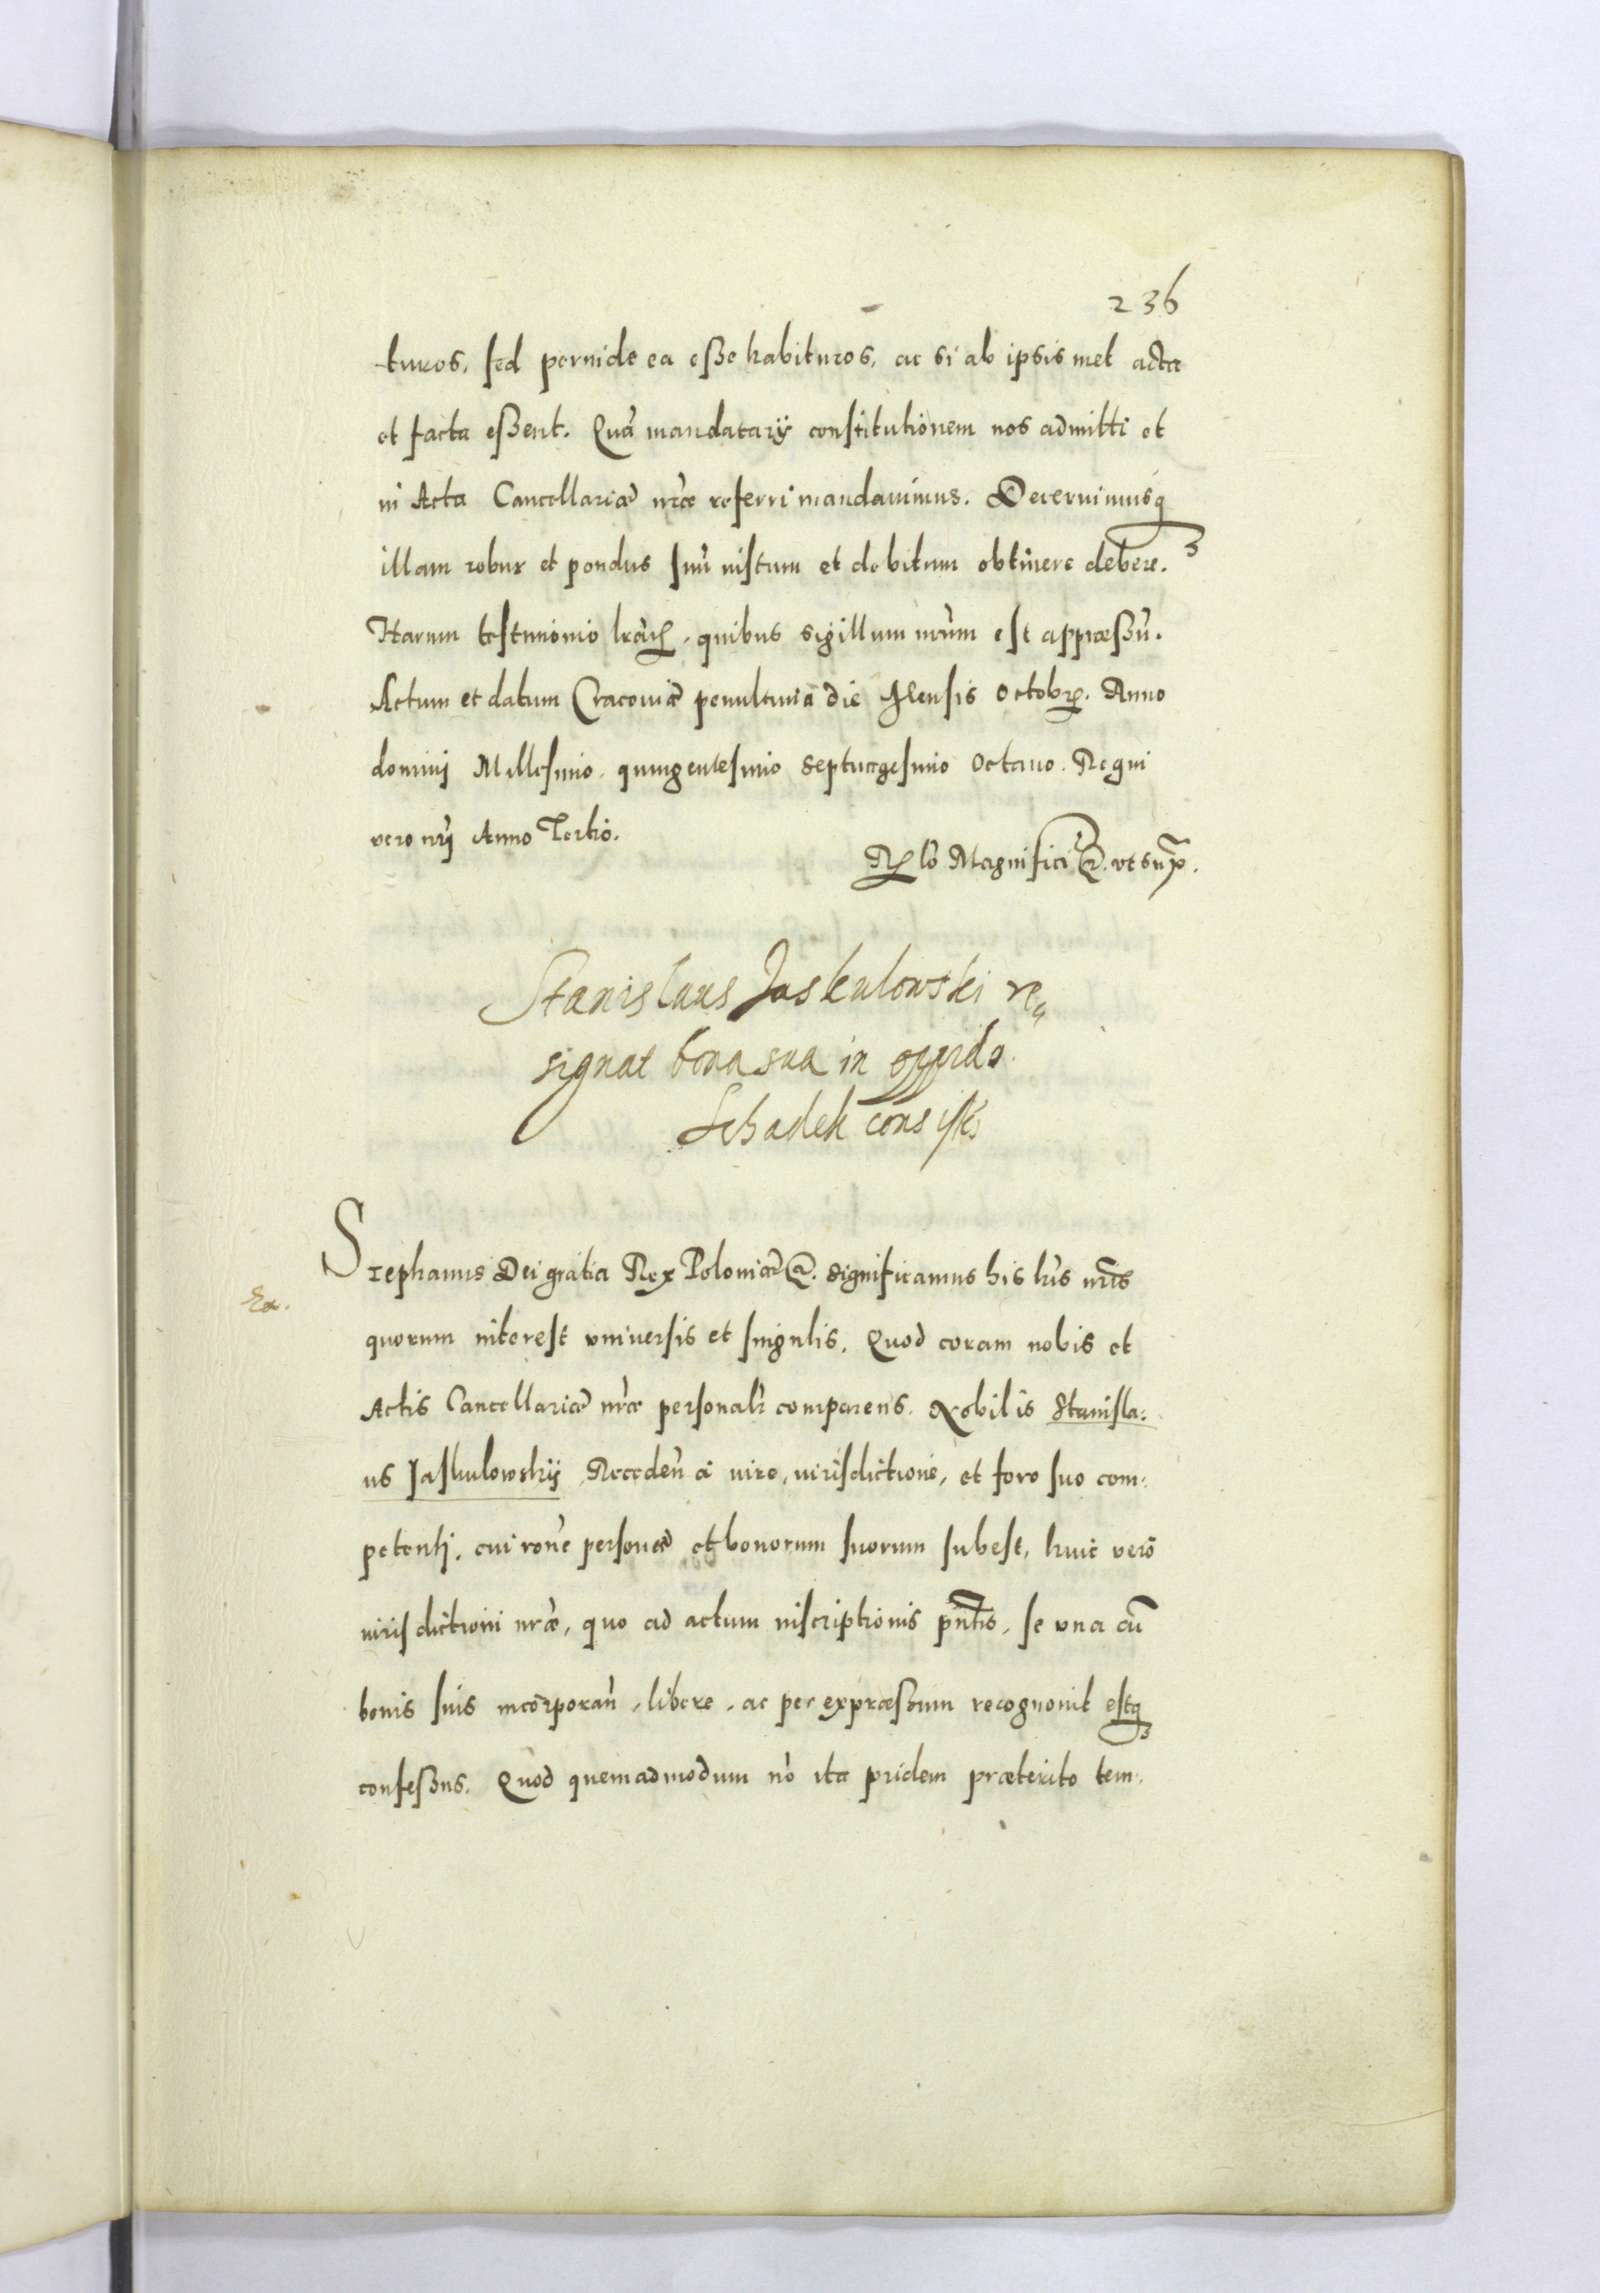 236
turos, sed perinide ea esse habituros, ac si ab ipsis met acta
et facta essent. Quã mandatarÿ constitutionem nos admitti et
in Acta Cancellariæ nr̃æ referri mandauimus. Decernimusq3
illam robur et pondus suũ iustum et debitum obtinere debere.
Harum testimonio lrãrũ, quibus sigillum nrũm est appræssũ.
Actum et datum Cracouiæ penultimã die Mensis Octobr. Anno
dominj Millesimo quingentesimo Septuagesimo Octauo. Regni
vero nrĩ Anno Tertio.
Rlõ Magnifici etc. vt supra.
Stanislaus Jaskulowski re„
signat bona sua in oppido
Schadek consist:
Stephanus Dei gratia Rex Poloniæ etc. Significamus his lrĩs nrĩs
Ex.
quorum interest vniuersis et singulis. Quod coram nobis et
Actis Cancellariæ nr̃æ personalr̃ comparens. Nobilis Stanisla:
us Jaskulowskÿ Recedeñ â iure, iurisdictione, et foro suo com-
petenti, cui rõne personæ et bonorum suorum subest, huic verò
iurisdictioni nr̃æ, quo ad actum inscriptionis pñtis, se vna cũ
bonis suis incorporañ, libere, ac per expræssum recognouit estq3
confessus. Quod quemadmodum nõ ita pridem præterito tem-